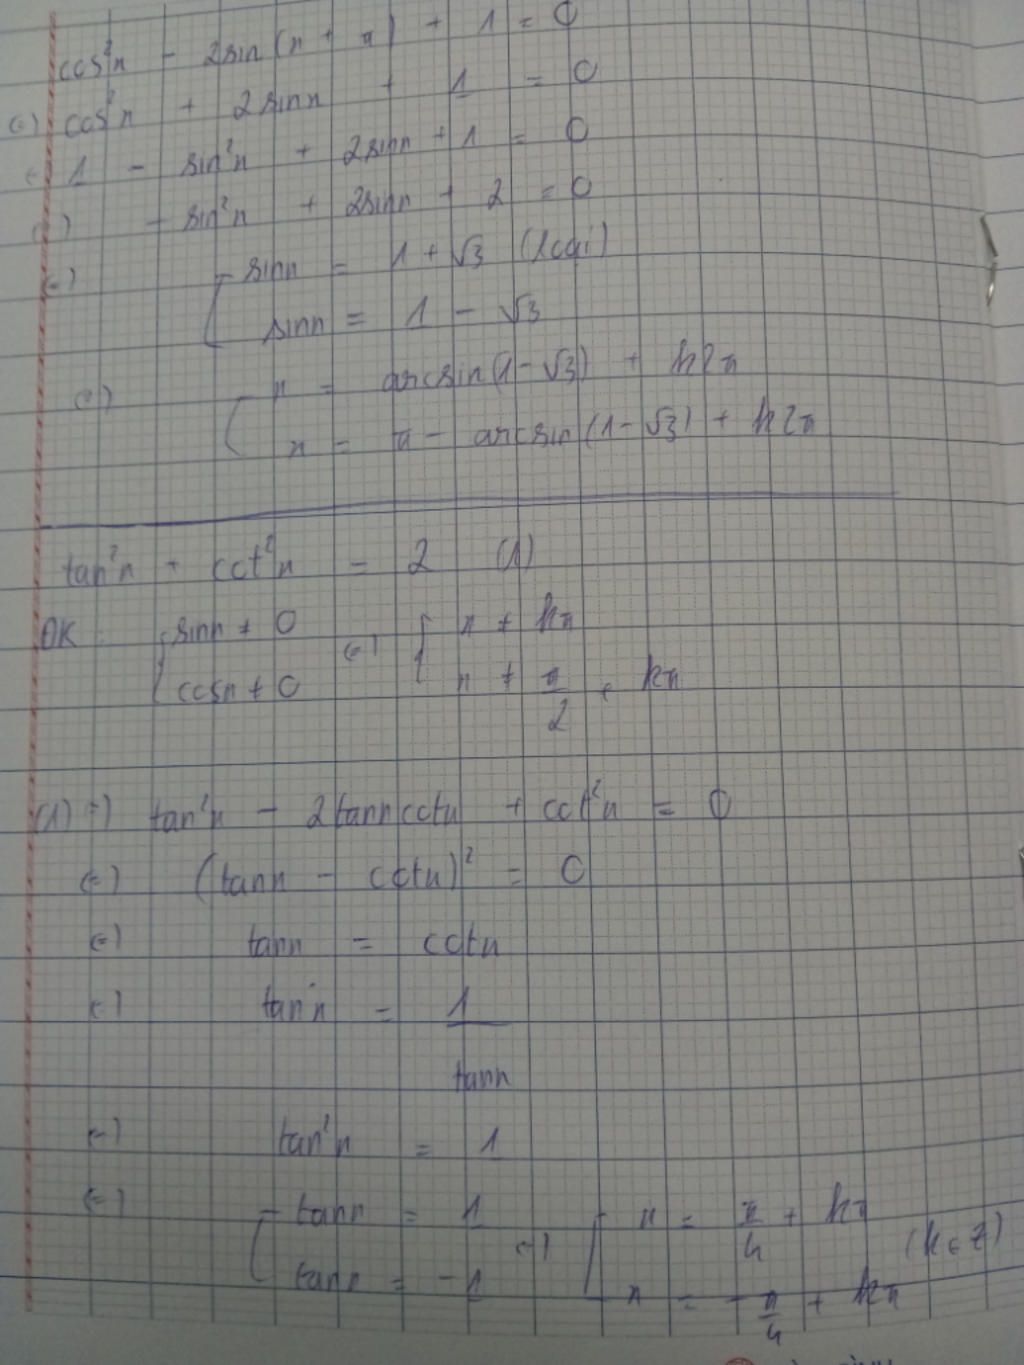 cos²x - 2sin(x + π) + 1 = 0
(=) cos²x + 2sinx + 1 = 0
(=) 1 - sin²x + 2sinx + 1 = 0
(=) - sin²x + 2sinx + 2 = 0
(=) [ sinx = 1 + √3 (loại)
sinx = 1 - √3
(=) [ x = arcsin(1 - √3) + k2π
x = π - arcsin(1 - √3) + k2π
tan²x + cot²x = 2 (1)
ĐK: { sinx ≠ 0 (=) { x ≠ kπ
cosx ≠ 0 x ≠ π/2 + kπ
(1) (=) tan²x - 2tanxcotx + cot²x = 0
(=) (tanx - cotx)² = 0
(=) tanx = cotx
(=) tanx = 1/tanx
(=) tan²x = 1
(=) [ tanx = 1 (=) [ x = π/4 + kπ (k ∈ Z)
tanx = -1 x = -π/4 + kπ